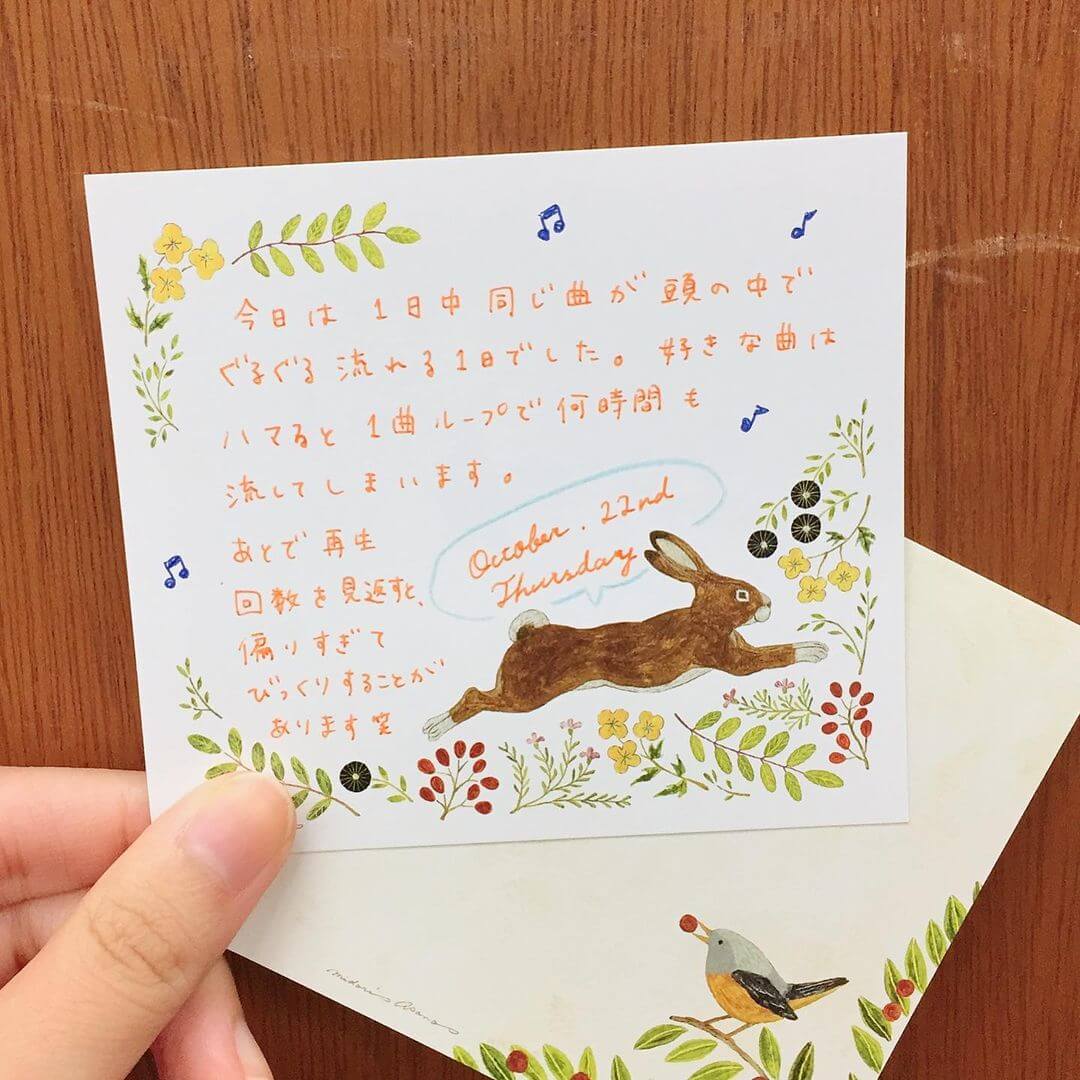 今日は 1日中 同じ曲が 頭の中で
ぐるぐる 流れる1日でした。 好きな曲は
ハマると 1曲ループで 何時間も
流してしまいます。
あとで 再生
回数を見返すと、
偏りすぎて
びっくりすることが
あります笑
October. 22nd
Thursday
midori's asano